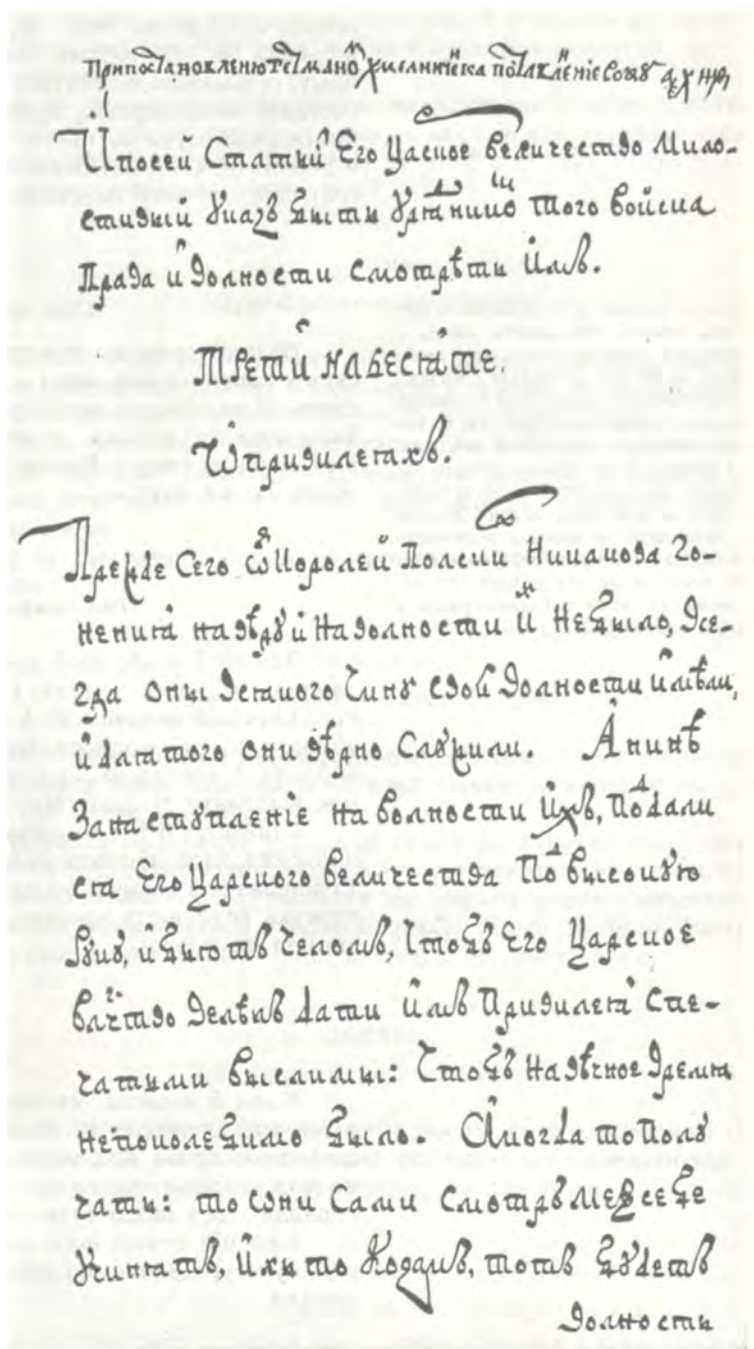 При постановленю гетмано Хмелницкка поставленіе союз ахнд
И по сей Статьи Его Царское величество Мило-
стивый указъ быти урядником того войска
Права и волности смотрѣти имъ.
Трети набесѣдѣ.
Ѡ привилегияхъ.
Прежде Сего ѿ Королей Полски Никакова Го-
нения на вѣру и На волности их Не было, Все-
гда они всякого Чину свои волности имѣли,
и для того они вѣрно Служили. А нинѣ
За наступление на волности ихъ, Поддали
ся Его Царского величества Под высокую
Руку, и бьютъ челомъ, Чтобъ Его Царское
влчтво Велѣлъ дати имъ Привилея С пе-
чатьми вислими: Чтобъ на вѣчное Время
непоколебимо было. А когда то Полу
чатъ: то они Сами Смотръ Меж себе
Учинятъ, и кто Козакъ, тотъ будетъ
волности